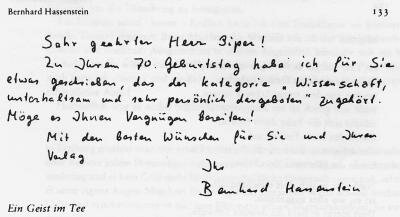 Bernhard Hassenstein 133
Sehr geehrter Herr Piper!
Zu Ihrem 70. Geburtstag habe ich für Sie
etwas geschrieben, das der Kategorie „Wissenschaft,
unterhaltsam und sehr persönlich dargeboten" zugehört.
Möge es Ihnen Vergnügen bereiten!
Mit den besten Wünschen für Sie und Ihren
Verlag
Ihr
Bernhard Hassenstein
Ein Geist im Tee